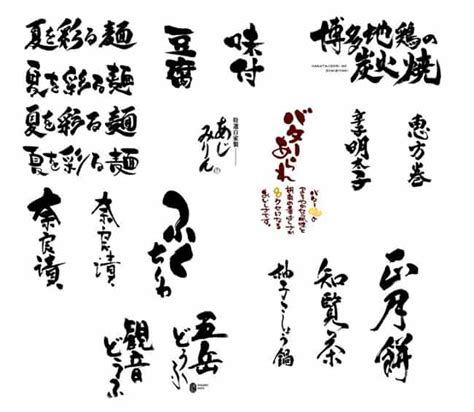 夏を彩る麺
夏を彩る麺
夏を彩る麺
夏を彩る麺
豆腐
味付
博多地鶏の
炭火焼
特選自家製
あじ
みりん
バター
あられ
辛子
明太子
恵方巻
奈良漬
奈良漬
ふく
ちくわ
観音
どうふ
五岳
どうふ
柚子こしょう鍋
知覧茶
正月餅